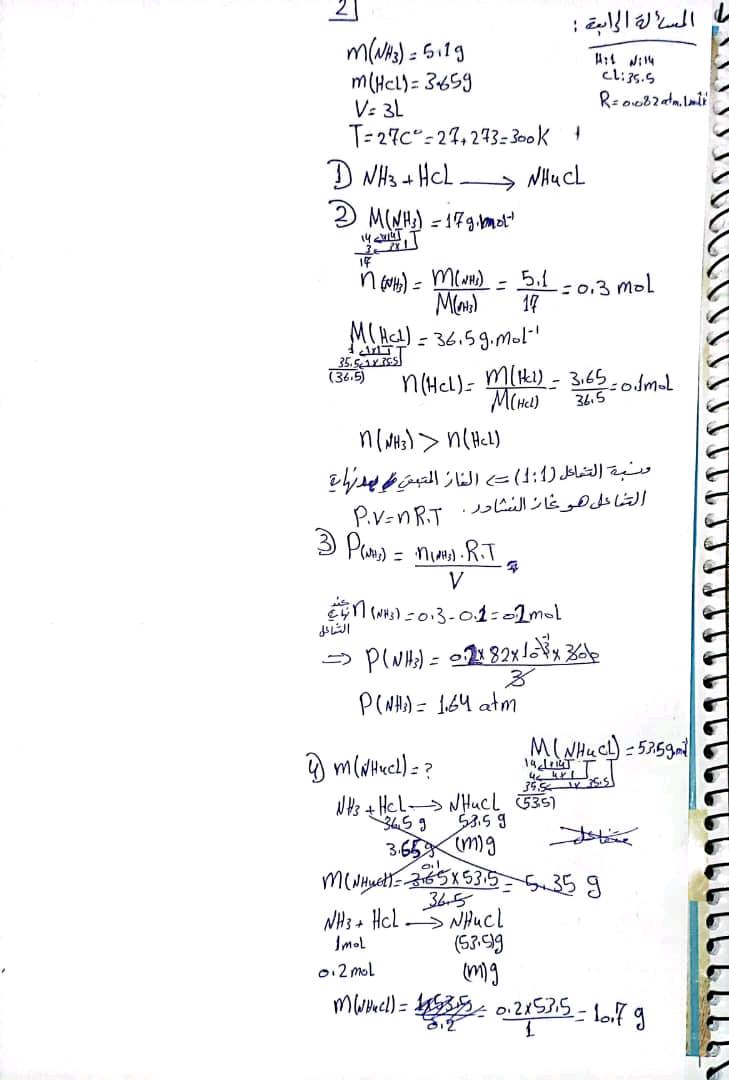 2
المسألة الرابعة :
H:1 N:14
CL:35.5
R=0.082 atm.L.mol
m(NH3)=5.1g
m(HCL)=3.65g
V=3L
T=27C°=27+273=300K
1) NH3+HCL → NH4CL
2) M(NH3)=17g.mol-1
n(NH3)= m(NH3)/M(NH3) = 5.1/17 =0.3 mol
M(HCl)=36.5g.mol-1
(36.5)
n(HCL)= m(HCl)/M(HCl) = 3.65/36.5 =0.1mol
n(NH3)>n(HCl)
ونسبة التفاعل (1:1) => الغاز المتبقي بعد نهاية
التفاعل هو غاز النشادر.
P.V=nR.T
3) P(NH3)= n(NH3).R.T/V
عند نهاية التفاعل n(NH3)=0.3-0.1=0.2mol
=> P(NH3)= 0.2x82x10-3x300/3
P(NH3)=1.64 atm
4) m(NH4cl)=?
M(NH4CL)=53.5g.mol-1
NH3+HCL → NH4CL
36.5g 53.5g
3.65g (m)g
m(NH4Cl)= 3.65x53.5/36.5 = 5.35 g
NH3+HCL → NH4CL
1mol (53.5)g
0.2mol (m)g
m(NH4Cl)= 1x53.5/0.2 = 0.2x53.5/1 =10.7 g